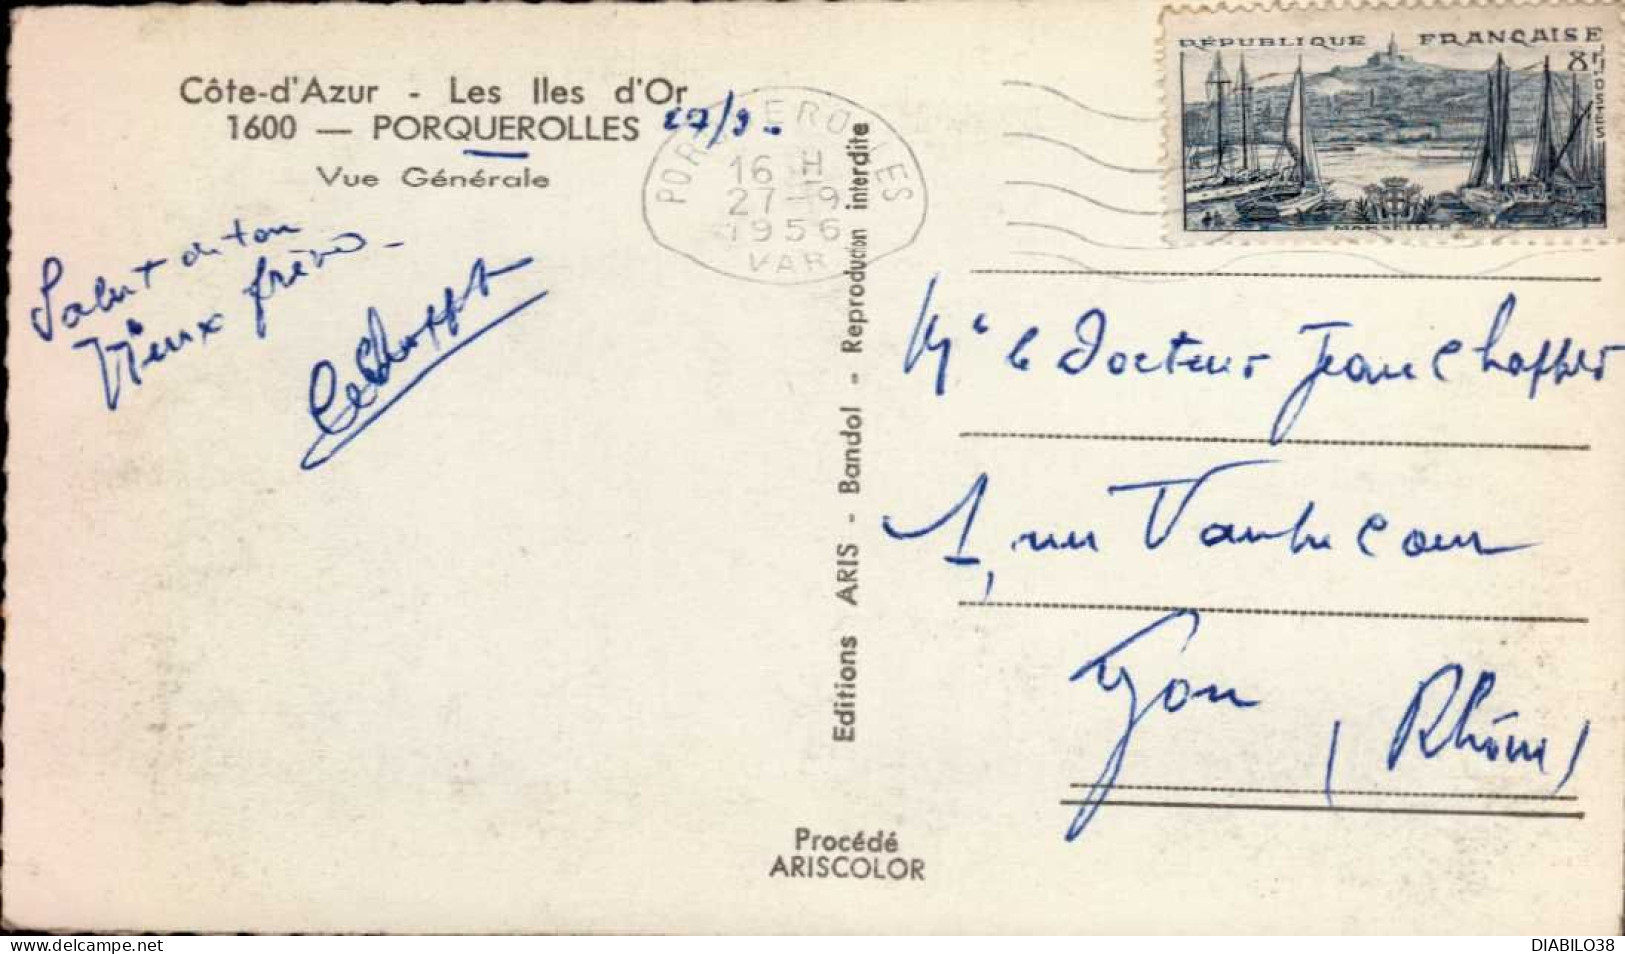 Côte-d'Azur - Les Iles d'Or
1600 — PORQUEROLLES 27/9-
Vue Générale
Salut de ton
Vieux frère -
PORQUEROLLES
16 H
27-9
1956
VAR
RÉPUBLIQUE FRANÇAISE
8F
POSTES
MARSEILLE
Mr le Docteur Jean
1, rue
Lyon
(Rhône)
Editions ARIS - Bandol - Reproduction interdite
Procédé
ARISCOLOR
delcampe.net
DIABILO38